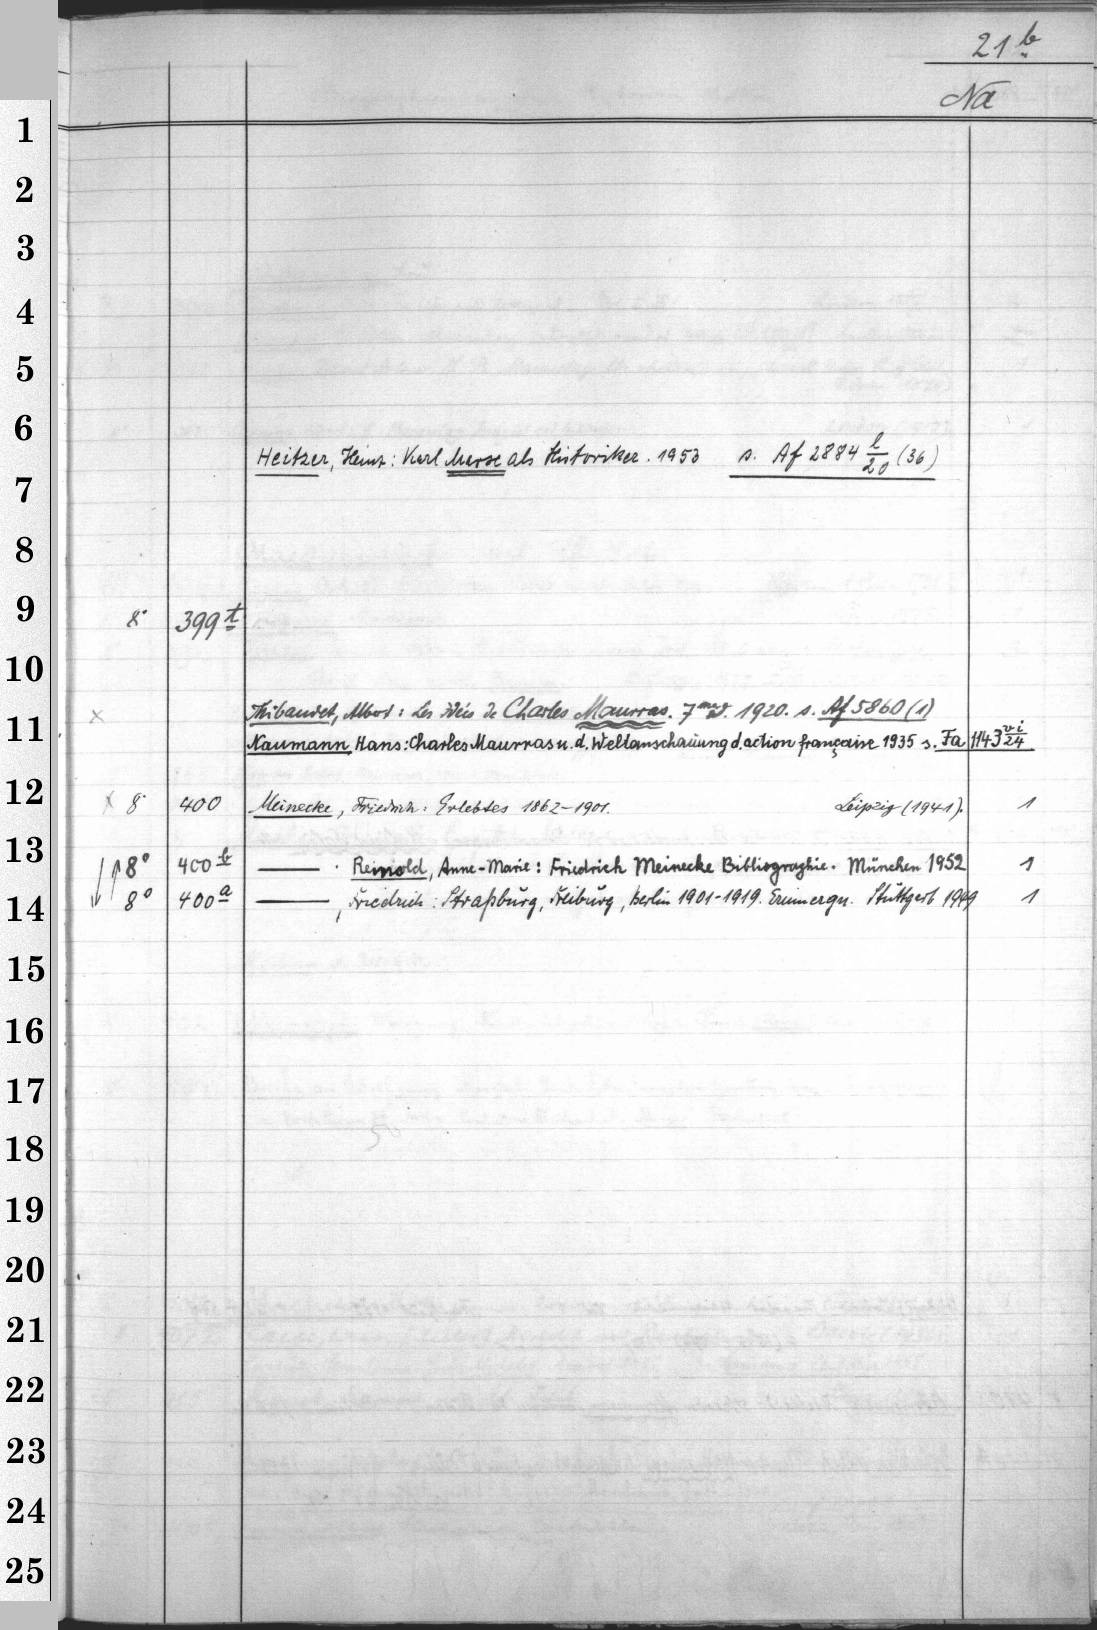 21 b
Na
1
2
3
4
5
6
Heitzer, Heinz: Karl Marxse als Historiker. 1953 s. Af 2884 l/20 (36)
7
8
9
8° 399 t
10
x Thibaudet, Albert: Les idées de Charles Maurras. 7me éd. 1920. s. Af 5860 (1)
11
Naumann, Hans: Charles Maurras u. d. Weltanschauung d. action française 1935 s. Fa 1143 vi/24
12
x 8° 400 Meinecke, Friedrich: Erlebtes 1862-1901. Leipzig (1941). 1
13
8° 400 b ——— . Reinold, Anne-Marie: Friedrich Meinecke Bibliographie. München 1952 1
14
8° 400 a ———, Friedrich: Straßburg, Freiburg, Berlin 1901-1919. Erinnergn. Stuttgart 1949 1
15
16
17
18
19
20
21
22
23
24
25